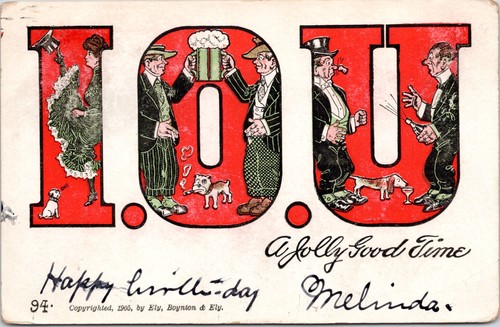 I.O.U
A Jolly Good Time
Happy birth-day Melinda.
94. Copyrighted, 1905, by Ely, Boynton & Ely.